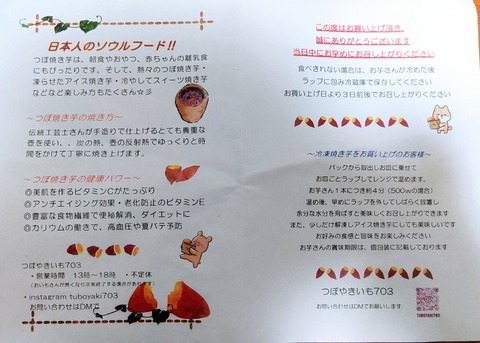 日本人のソウルフード!!
つぼ焼き芋は、朝食やおやつ、赤ちゃんの離乳食
にもぴったりです。そして、熱々のつぼ焼き芋・
凍らせたアイス焼き芋・冷やしてスイーツ焼き芋
などなど楽しみ方もたくさん☆彡
～つぼ焼き芋の焼き方～
伝統工芸士さんが手造りで仕上げるとても貴重な
壺を使い、、炭の熱、壺の反射熱でゆっくりと時
間をかけて丁寧に焼き上げます。
～つぼ焼き芋の健康パワー～
◎美肌を作るビタミンCがたっぷり
◎アンチエイジング効果・老化防止のビタミンE
◎豊富な食物繊維で便秘解消、ダイエットに
◎カリウムの働きで、高血圧や夏バテ予防
つぼやきいも703
・営業時間 13時～18時 ・不定休
(おいもさんが無くなり次第終了する場合があります)
・instagram tuboyaki703
お問い合わせはDMで
この度はお買い上げ頂き、
誠にありがとうございます
当日中にお早めにお召し上がりください
食べきれない場合は、お芋さんが冷めた後
ラップに包み冷蔵庫で保存してください
お買い上げ日より３日前後でお召し上がりください
～冷凍焼き芋をお買い上げのお客様～
パックから取出しお皿に乗せて
お皿ごとラップしてレンジで温めます。
お芋さん１本につき約４分（500wの場合）
温め後、早めにラップを外してしばらく放置し
余分な水分を飛ばすと美味しくお召し上がりできます
また、少しだけ解凍しアイス焼き芋にしても美味しいです
お好みの食感と旨味をお楽しみください
お芋さんの賞味期限は、個包装に記載しております
つぼやきいも703
お問い合わせはDMでお願いします
TUBOYAKI703